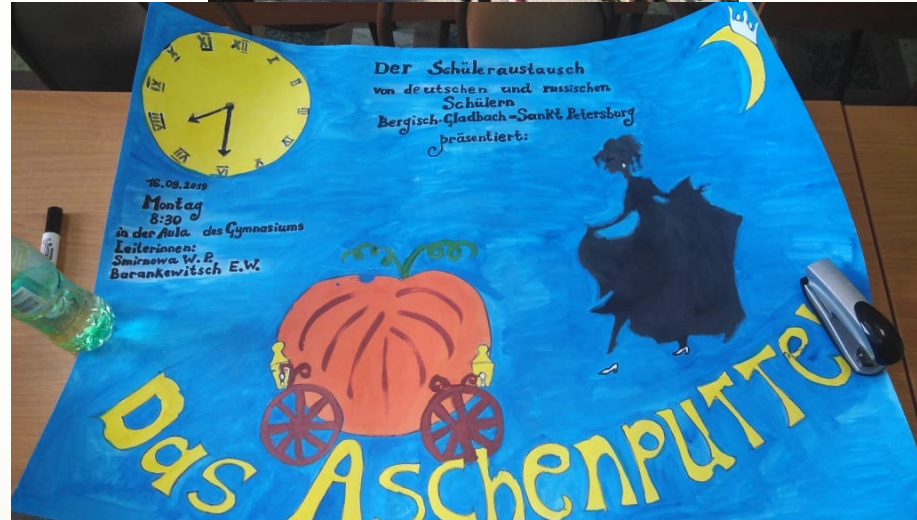 XII
I
II
III
IIII
V
VI
VII
VIII
XI
Der Schüleraustausch
von deutschen und russischen
Schülern
Bergisch-Gladbach-Sankt Petersburg
präsentiert:
16.09.2019
Montag
8:30
in der Aula des Gymnasiums
Leiterinnen:
Smirnowa W. P.
Barankewitsch E.W.
Das Aschenputte